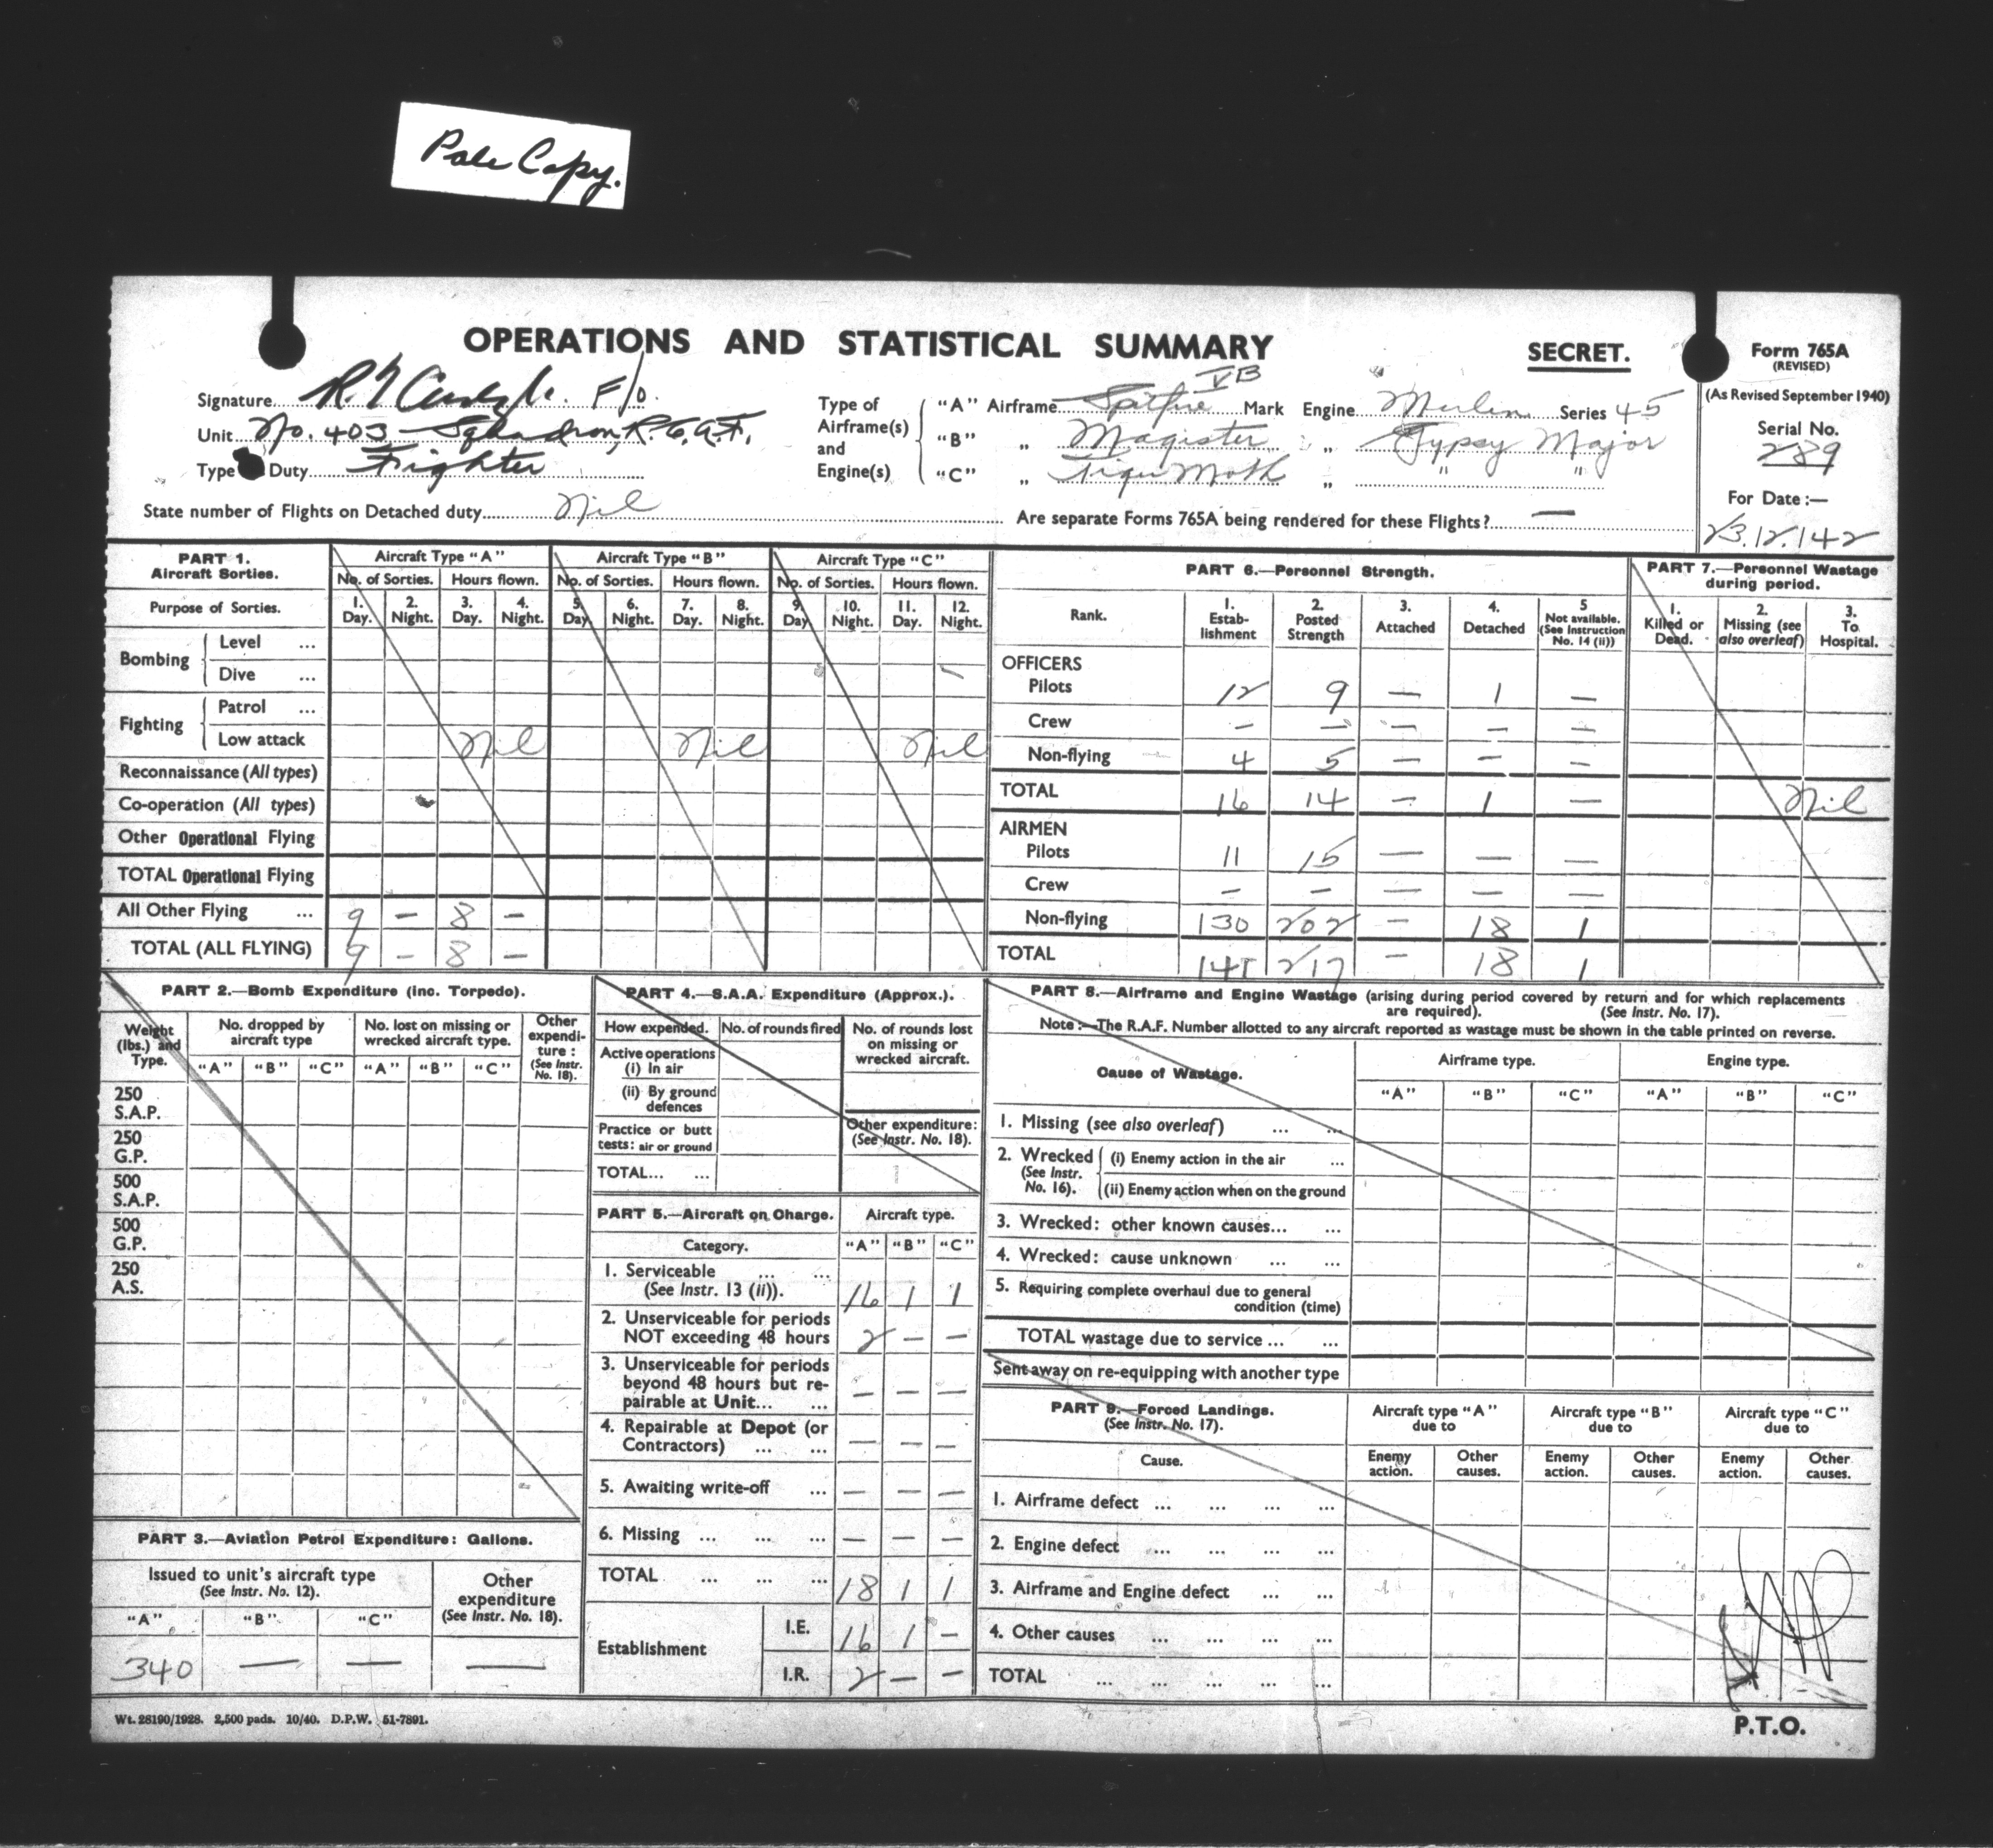 Pale Copy.
OPERATIONS AND STATISTICAL SUMMARY
SECRET.
Form 765A
(REVISED)
(As Revised September 1940)
Serial No.
289
For Date :—
23.12.142
Signature R. F/o.
Unit No. 403 Squadron, R.C.A.F.
Type Duty Fighter
Type of Airframe(s) and Engine(s)
"A" Airframe Spitfire Mark VB Engine Merlin Series 45
"B" " Magister " Gypsy Major
"C" " Tiger Moth " " "
State number of Flights on Detached duty Nil
Are separate Forms 765A being rendered for these Flights? —
PART 1.
Aircraft Sorties.
Aircraft Type "A" Aircraft Type "B" Aircraft Type "C"
No. of Sorties. Hours flown. No. of Sorties. Hours flown. No. of Sorties. Hours flown.
Purpose of Sorties. 1. Day. 2. Night. 3. Day. 4. Night. 5. Day 6. Night. 7. Day. 8. Night. 9. Day 10. Night. 11. Day. 12. Night.
Bombing Level ...
Dive ...
Fighting Patrol ...
Low attack Nil Nil Nil
Reconnaissance (All types)
Co-operation (All types)
Other Operational Flying
TOTAL Operational Flying
All Other Flying ... 9 – 8 –
TOTAL (ALL FLYING) 9 – 8 –
PART 6.—Personnel Strength.
Rank. 1. Estab-lishment 2. Posted Strength 3. Attached 4. Detached 5 Not available. (See Instruction No. 14 (ii))
OFFICERS
Pilots 12 9 — 1 —
Crew – – – – –
Non-flying 4 5 – – –
TOTAL 16 14 – 1 —
AIRMEN
Pilots 11 15 — — —
Crew – – — — —
Non-flying 130 202 – 18 1
TOTAL 141 217 – 18 1
PART 7.—Personnel Wastage during period.
1. Killed or Dead. 2. Missing (see also overleaf) 3. To Hospital.
Nil
PART 2.—Bomb Expenditure (inc. Torpedo).
Weight (lbs.) and Type. No. dropped by aircraft type No. lost on missing or wrecked aircraft type. Other expendi-ture : (See Instr. No. 18).
"A" "B" "C" "A" "B" "C"
250 S.A.P.
250 G.P.
500 S.A.P.
500 G.P.
250 A.S.
PART 3.—Aviation Petrol Expenditure: Gallons.
Issued to unit's aircraft type (See Instr. No. 12).
Other expenditure (See Instr. No. 18).
"A" "B" "C"
340 — — —
PART 4.—S.A.A. Expenditure (Approx.).
How expended. No. of rounds fired No. of rounds lost on missing or wrecked aircraft.
Active operations
(i) In air
(ii) By ground defences
Practice or butt tests: air or ground
Other expenditure: (See Instr. No. 18).
TOTAL... ...
PART 5.—Aircraft on Charge. Aircraft type.
Category. "A" "B" "C"
1. Serviceable ... ... (See Instr. 13 (ii)). 16 1 1
2. Unserviceable for periods NOT exceeding 48 hours 2 – –
3. Unserviceable for periods beyond 48 hours but re-pairable at Unit... ... – – –
4. Repairable at Depot (or Contractors) ... ... – – –
5. Awaiting write-off ... – – –
6. Missing ... ... ... – – –
TOTAL ... ... ... 18 1 1
Establishment I.E. 16 1 –
I.R. 2 – –
PART 8.—Airframe and Engine Wastage (arising during period covered by return and for which replacements are required). (See Instr. No. 17).
Note :—The R.A.F. Number allotted to any aircraft reported as wastage must be shown in the table printed on reverse.
Cause of Wastage. Airframe type. Engine type.
"A" "B" "C" "A" "B" "C"
1. Missing (see also overleaf) ... ...
2. Wrecked (See Instr. No. 16). (i) Enemy action in the air ...
(ii) Enemy action when on the ground
3. Wrecked: other known causes... ...
4. Wrecked: cause unknown ... ...
5. Requiring complete overhaul due to general condition (time)
TOTAL wastage due to service ... ...
Sent away on re-equipping with another type
PART 9.—Forced Landings.
(See Instr. No. 17).
Aircraft type "A" due to Aircraft type "B" due to Aircraft type "C" due to
Cause. Enemy action. Other causes. Enemy action. Other causes. Enemy action. Other causes.
1. Airframe defect ... ... ... ...
2. Engine defect ... ... ... ...
3. Airframe and Engine defect ... ...
4. Other causes ... ... ... ...
TOTAL ... ... ... ...
Wt. 28190/1928. 2,500 pads. 10/40. D.P.W. 51-7891.
P.T.O.